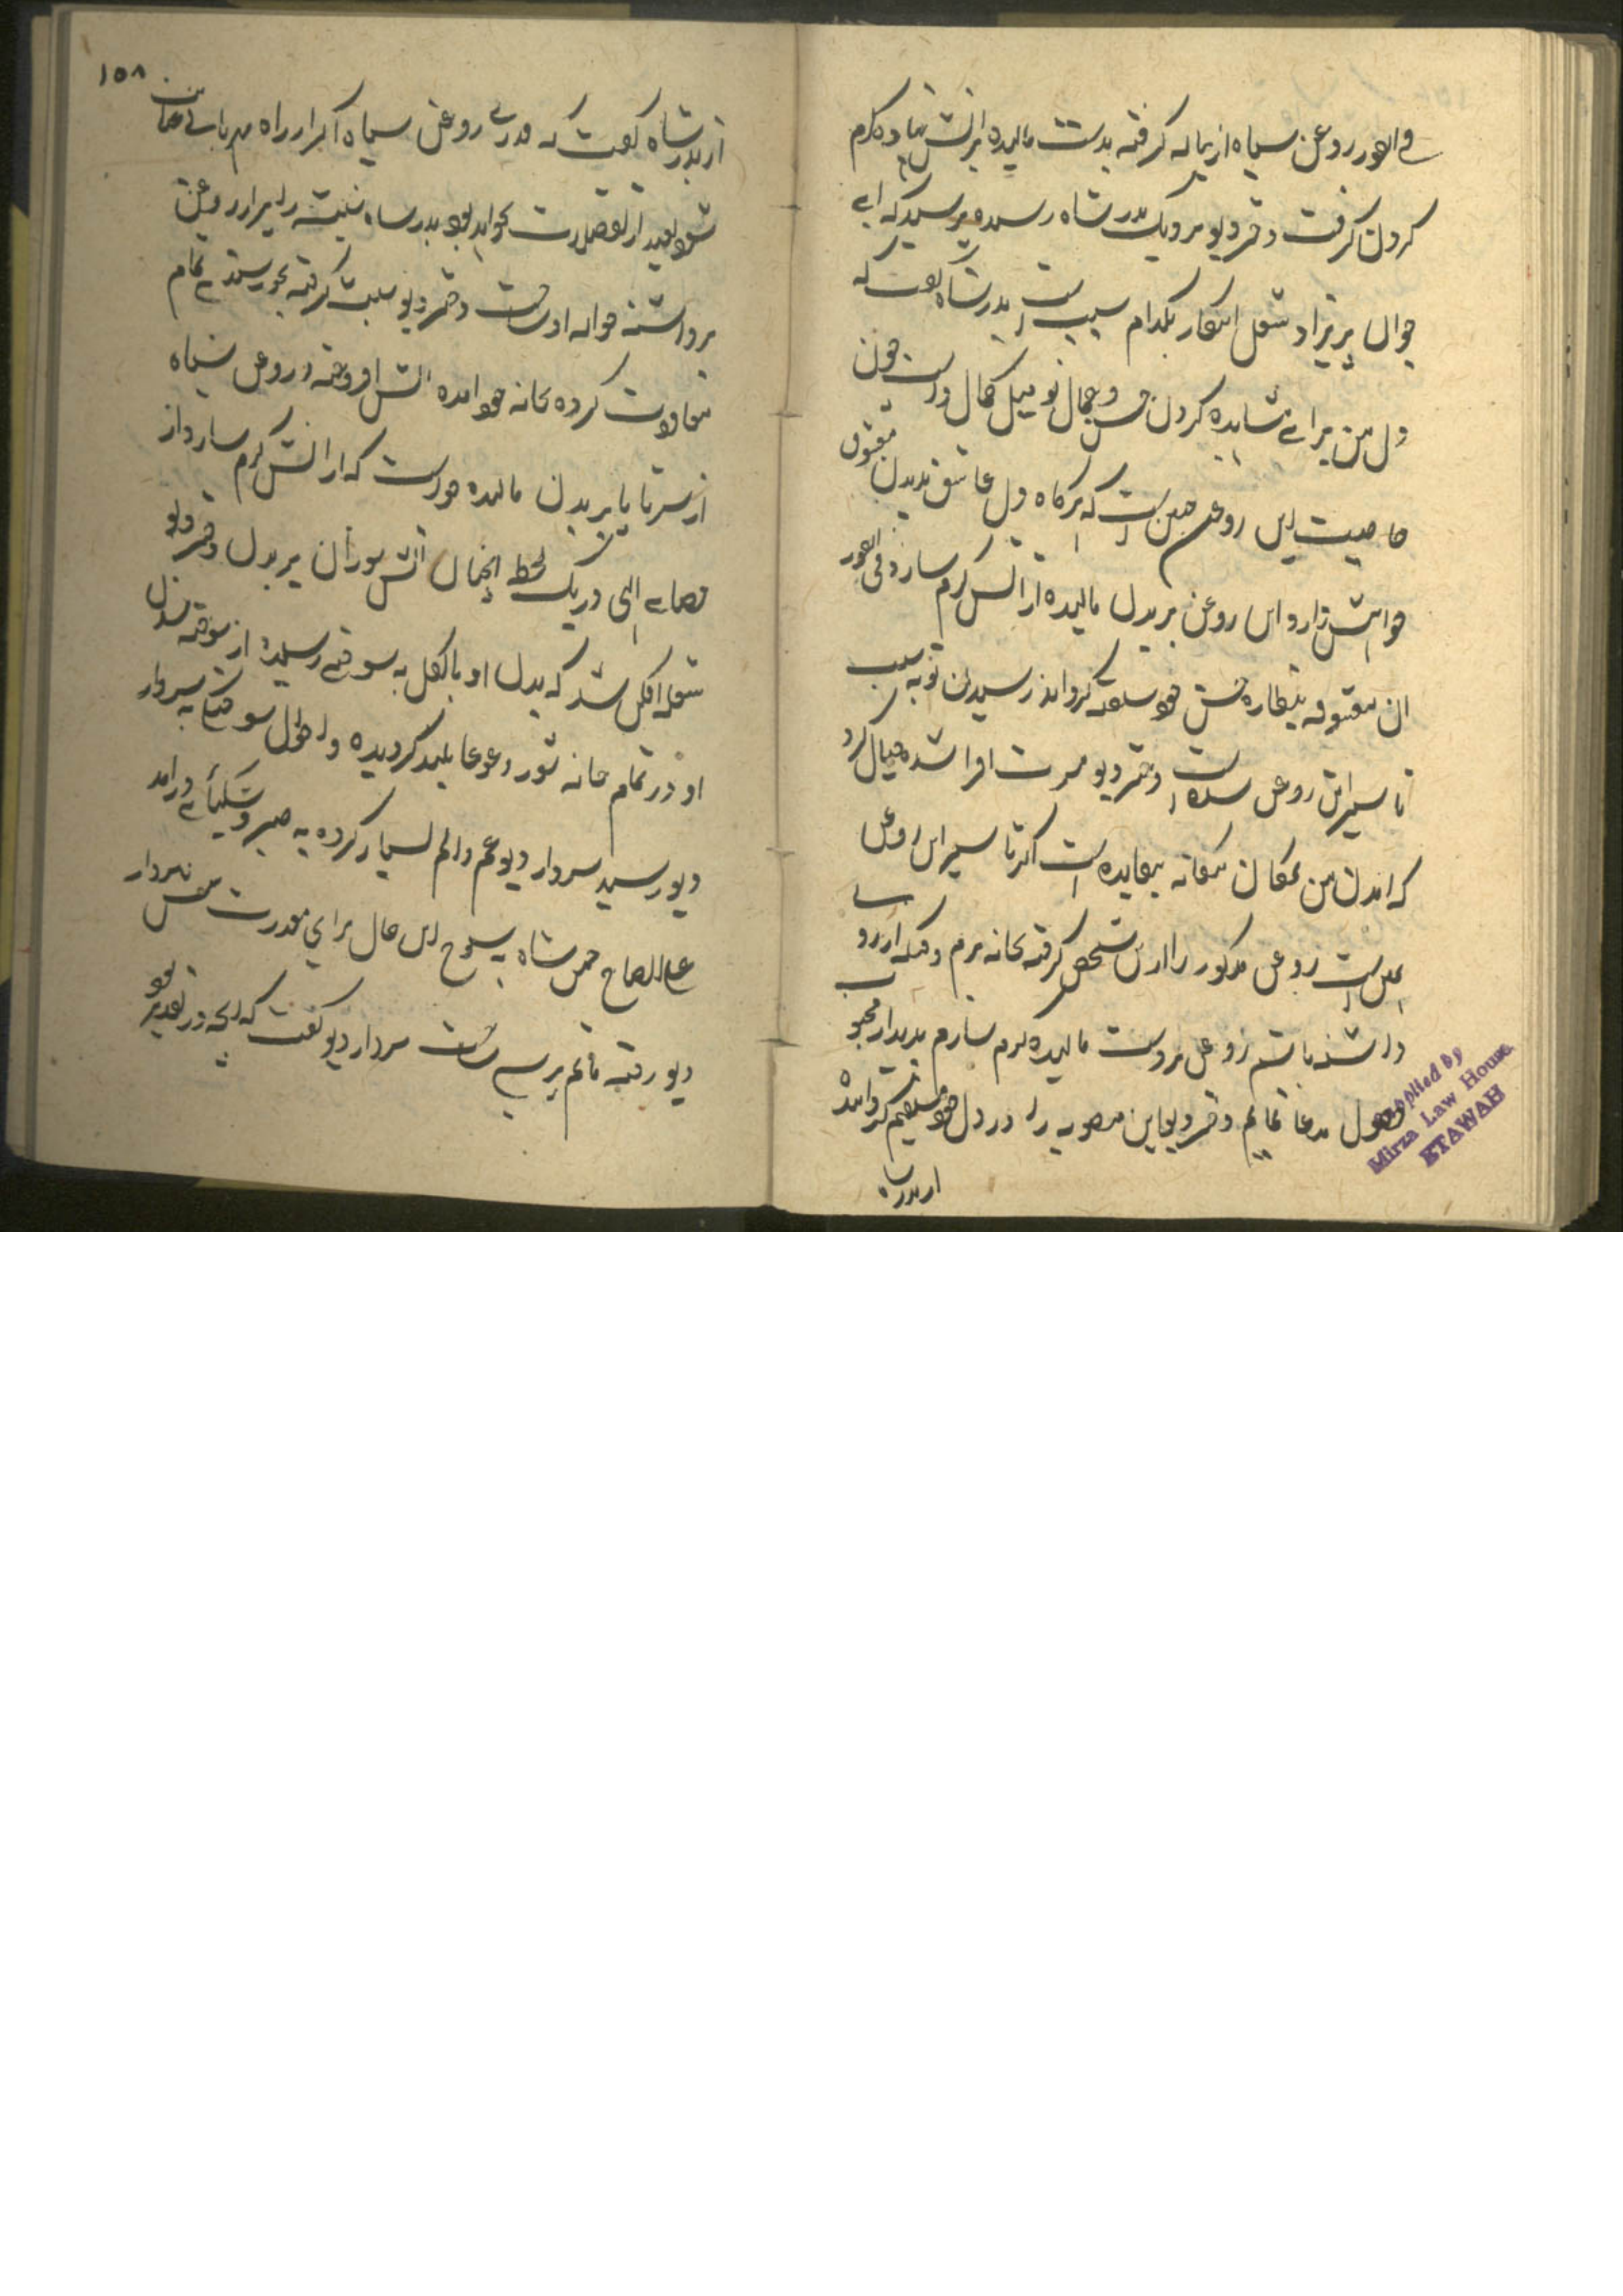 فی الفور روغن سیاه از پیاله گرفته بدست مالیده بر اتش نهاده گرم
کردن گرفت دختر دیو نزدیک بدر شاه رسیده پرسید که ای
جوان پریزاد شغل اینکار بکدام سبب است بدر شاه گفت که
دل من برای مشاهده کردن حسن و جمال تو میل کمال دارد چون
خاصیت این روغن چنین است که هرگاه دل عاشق بدیدن معشوق
خواهش دارد این روغن بر بدن مالیده از اتش گرم سازد فی الفور
ان معشوقه بنظاره حسن خود گرداند رسیدن تو به سبب
تاثیر این روغن شده است دختر دیو افزا شده خیال کرد
که امدن من بمکان بیگانه بیفایده است اگر تاثیر این روغن
است روغن مذکور را ازین شخص گرفته بخانه برم وقتیکه ارزوی
داشته باشم روغن بر دست مالیده گرم سازم بدیدار محبوب
حصول مدعا نمایم دختر دیو این منصوبه را در دل خود گردانیده
از بدر شاه
Supplied by
Mirza Law House
ETAWAH
۱۵۸
از بدر شاه گفت که قدری روغن سیاه اگر از راه مهربانی عنایت
شود بعید از تفضلات نخواهد بود بدر شاه شیشه را روغن
برداشته حواله او ساخت دختر دیو گرفته بخورسندی تمام
کرده بخانه خود امده اتش افروخته و روغن سیاه
از سر تا پا بر بدن مالیده خواست که از اتش گرم سازد از
قضای الهی در یک لحظه انچنان اتش سوزان بر بدن دختر دیو
شعله افکن شد که بدن او بالکل به سوختی رسید از سوخته شدن
او در تمام خانه شور و غوغا بلند گردیده و احوال سوختگی به سردار
دیو رسید سردار دیو غم و الم بسیار کرده به صبر و شکیبائی درامد
علی الصباح شاه این حال برای پیش سردار
دیو رفته ماتم پرسی ساخت سردار دیو گفت که انچه در تقدیر بود